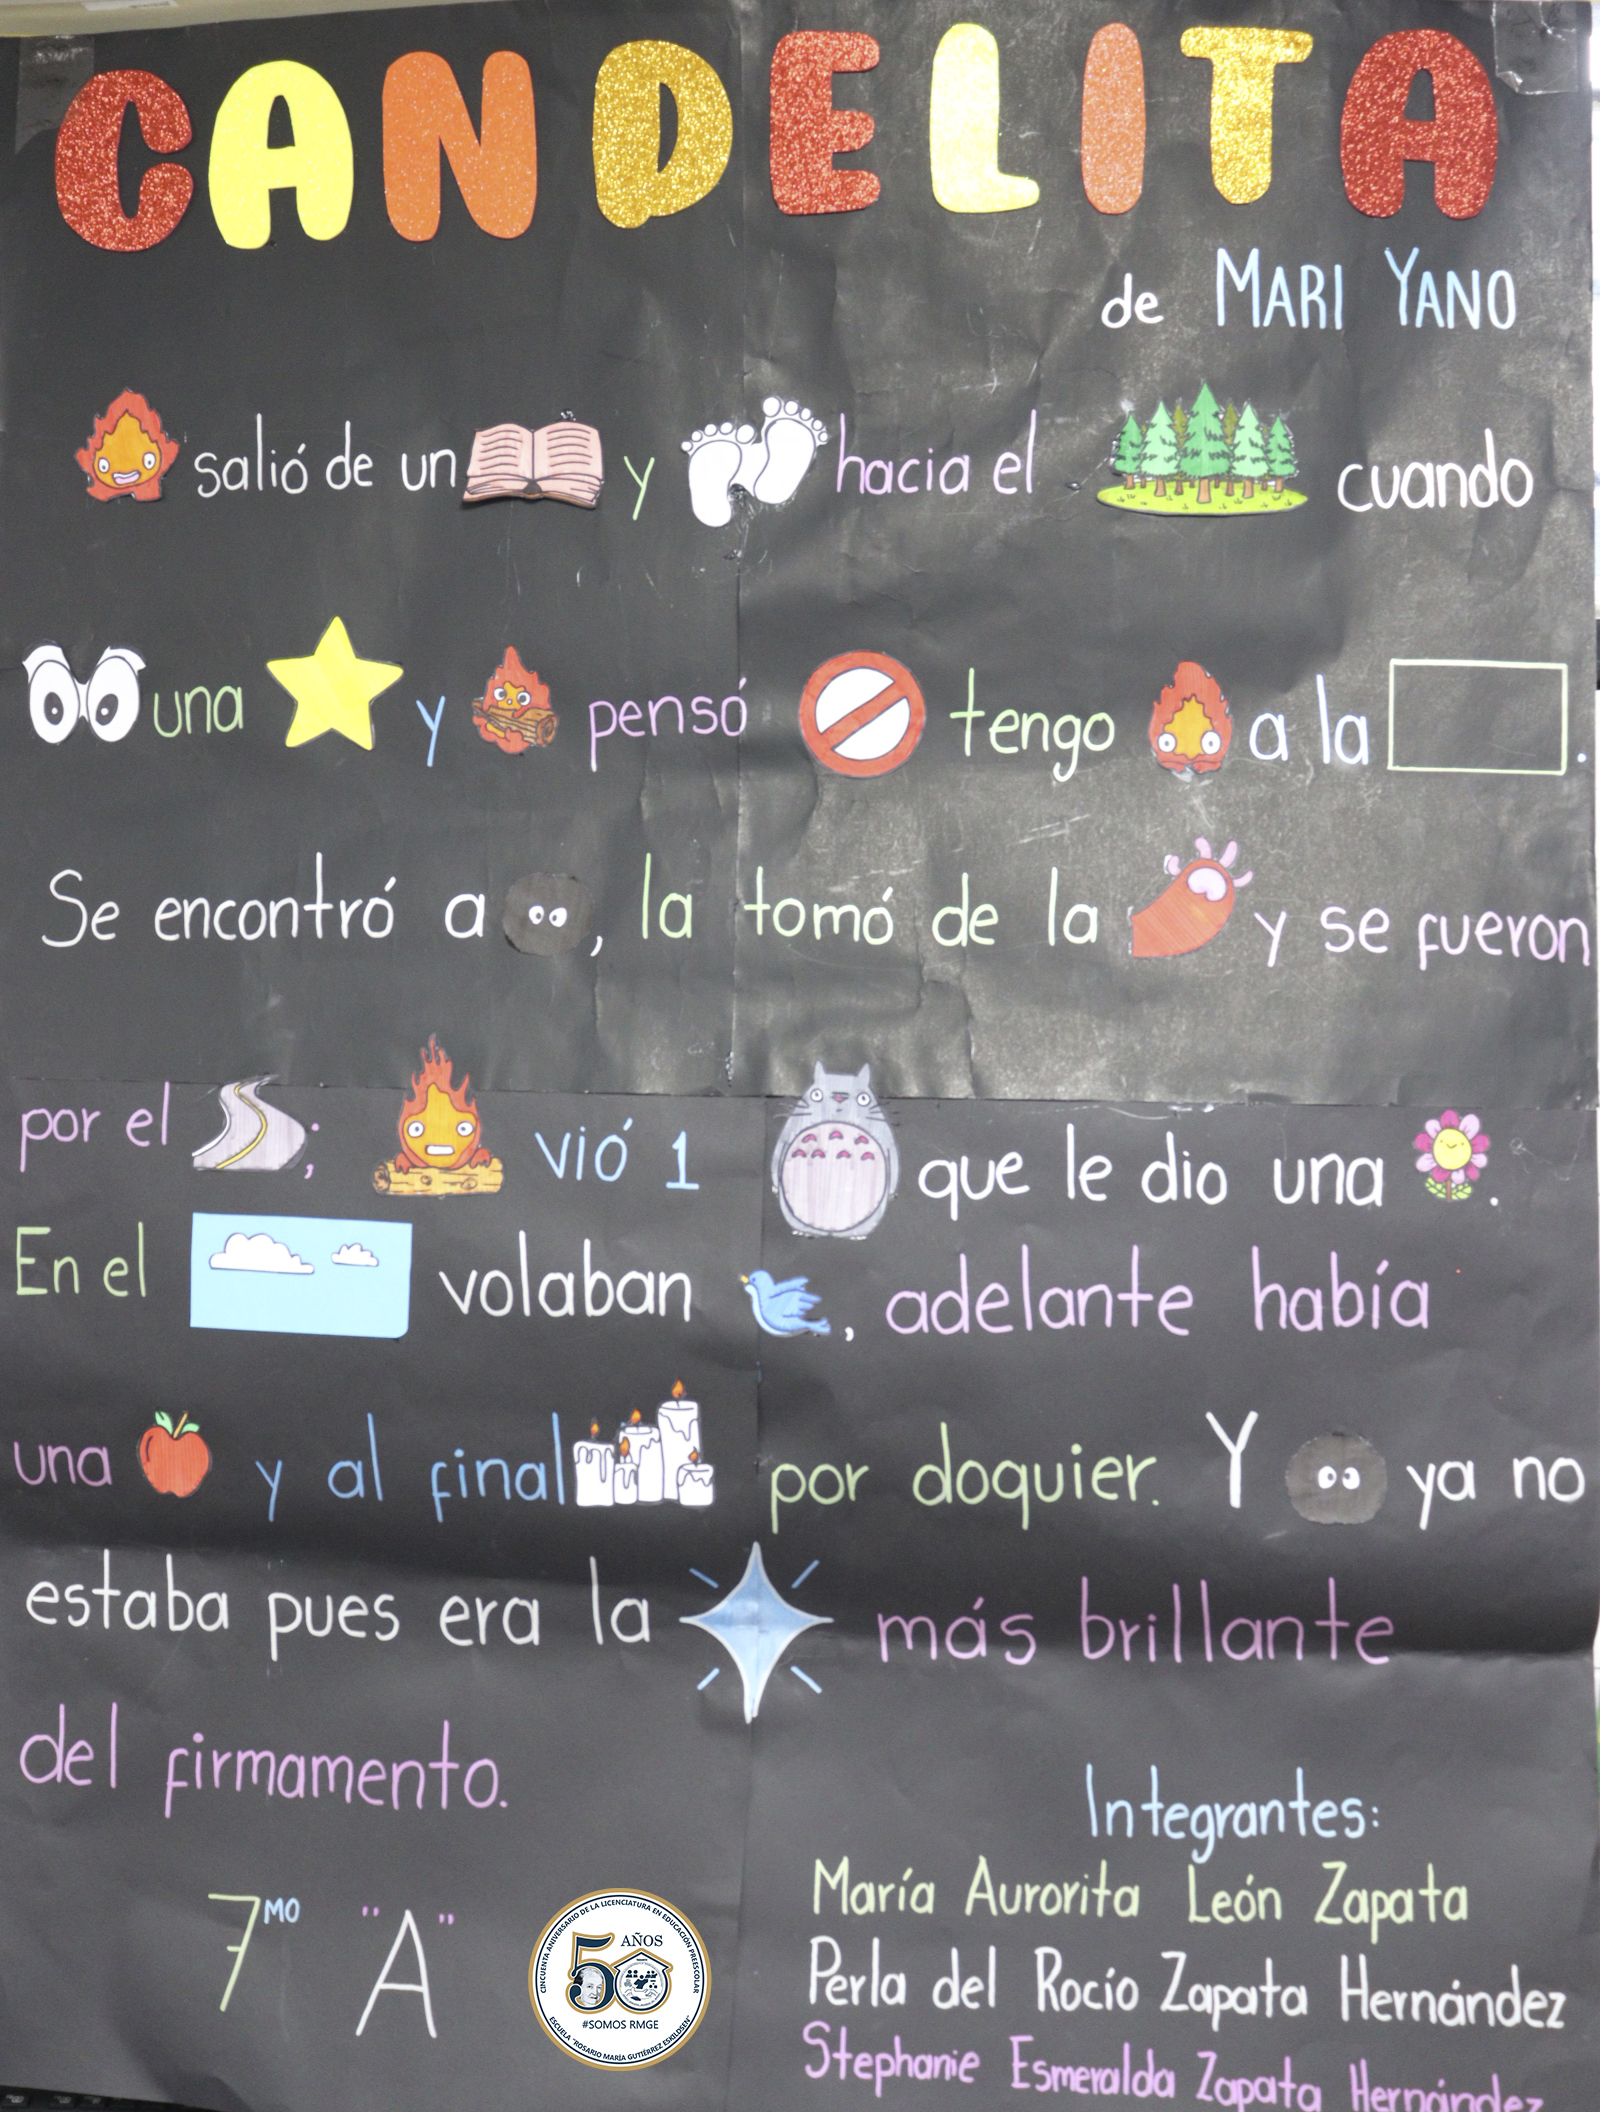 CANDELITA
de MARI YANO
salió de un y hacia el cuando
una y pensó tengo a la .
Se encontró a , la tomó de la y se fueron
por el ; vió 1 que le dio una .
En el volaban , adelante había
una y al final por doquier. Y ya no
estaba pues era la más brillante
del firmamento.
Integrantes:
María Aurorita León Zapata
Perla del Rocío Zapata Hernández
Stephanie Esmeralda Zapata Hernández
7MO "A"
CINCUENTA ANIVERSARIO DE LA LICENCIATURA EN EDUCACIÓN PREESCOLAR
50 AÑOS
#SOMOS RMGE
ESCUELA "ROSARIO MARÍA GUTIÉRREZ ESKILDSEN"